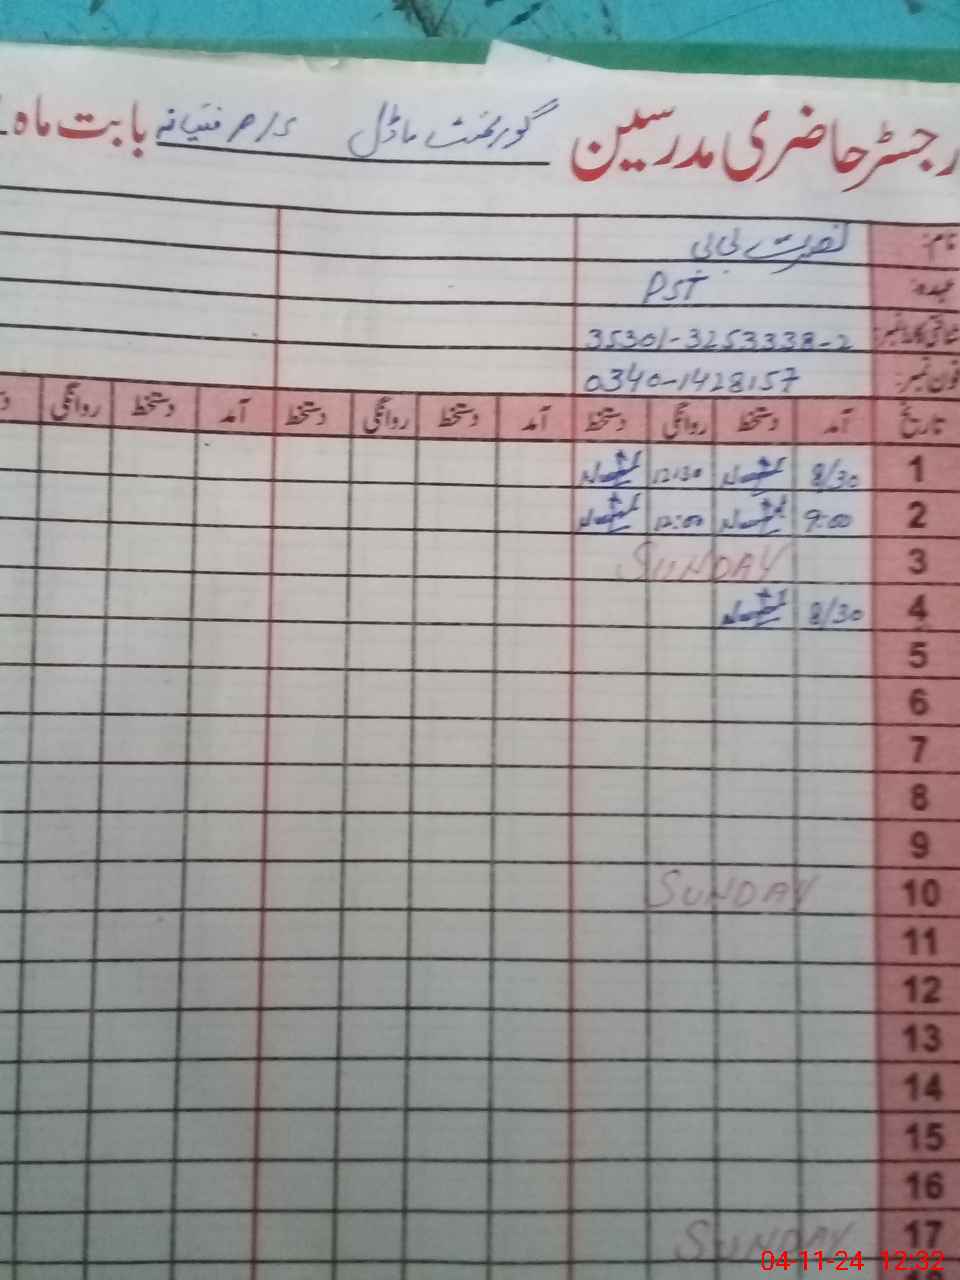 رجسٹر حاضری مدرسین گورنمنٹ ماڈل بابت ماہ
نام: نصرت بی بی
عہدہ: PST
شناختی کارڈ نمبر: 35301-3253338-2
فون نمبر: 0340-1428157
تاریخ آمد دستخط روانگی دستخط آمد دستخط روانگی دستخط آمد دستخط روانگی
1 8/30 12:30
2 9:00 12:00
3 SUNDAY
4 8/30
5
6
7
8
9
10 SUNDAY
11
12
13
14
15
16
17 SUNDAY
04-11-24 12:32